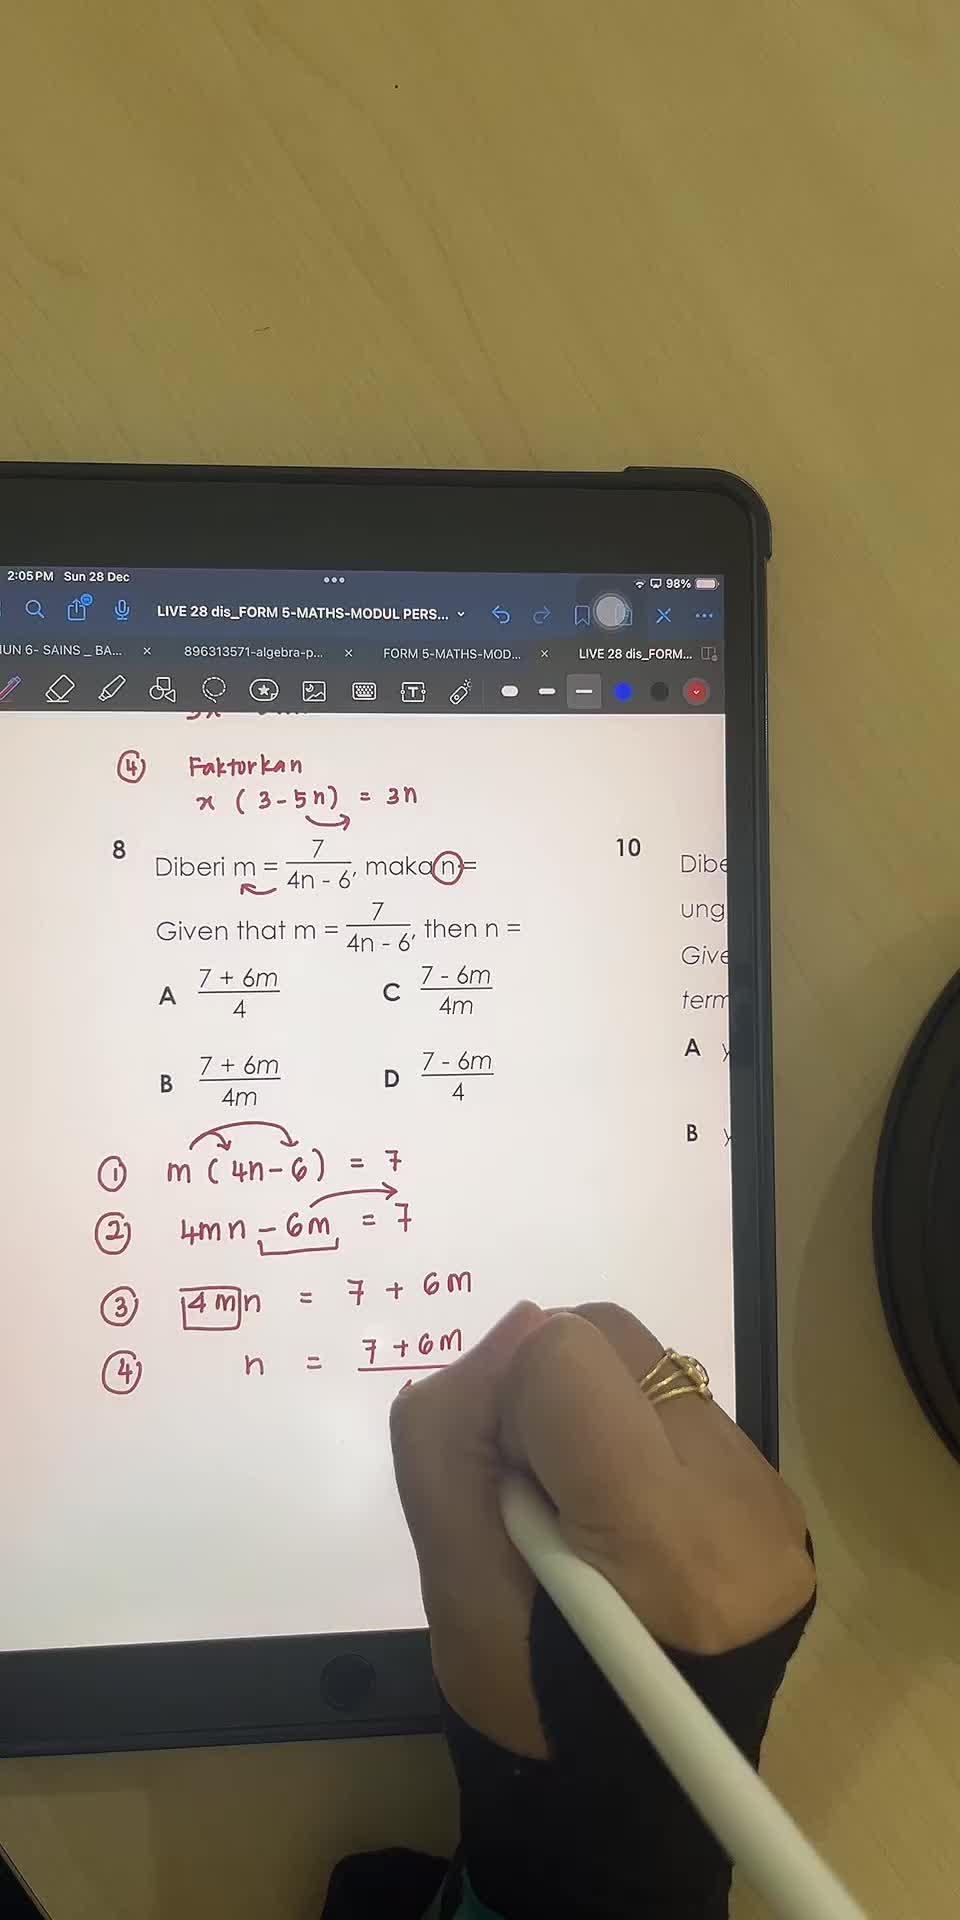 2:05 PM Sun 28 Dec
98%
LIVE 28 dis_FORM 5-MATHS-MODUL PERS...
UN 6- SAINS _ BA... × 896313571-algebra-p... × FORM 5-MATHS-MOD... × LIVE 28 dis_FORM...
④ Faktorkan
x ( 3 - 5n ) = 3n
8 Diberi m = 7/(4n - 6), maka n =
Given that m = 7/(4n - 6), then n =
A (7 + 6m)/4
C (7 - 6m)/4m
B (7 + 6m)/4m
D (7 - 6m)/4
① m ( 4n - 6 ) = 7
② 4mn - 6m = 7
③ 4mn = 7 + 6m
④ n = 7 + 6m
10
A
B